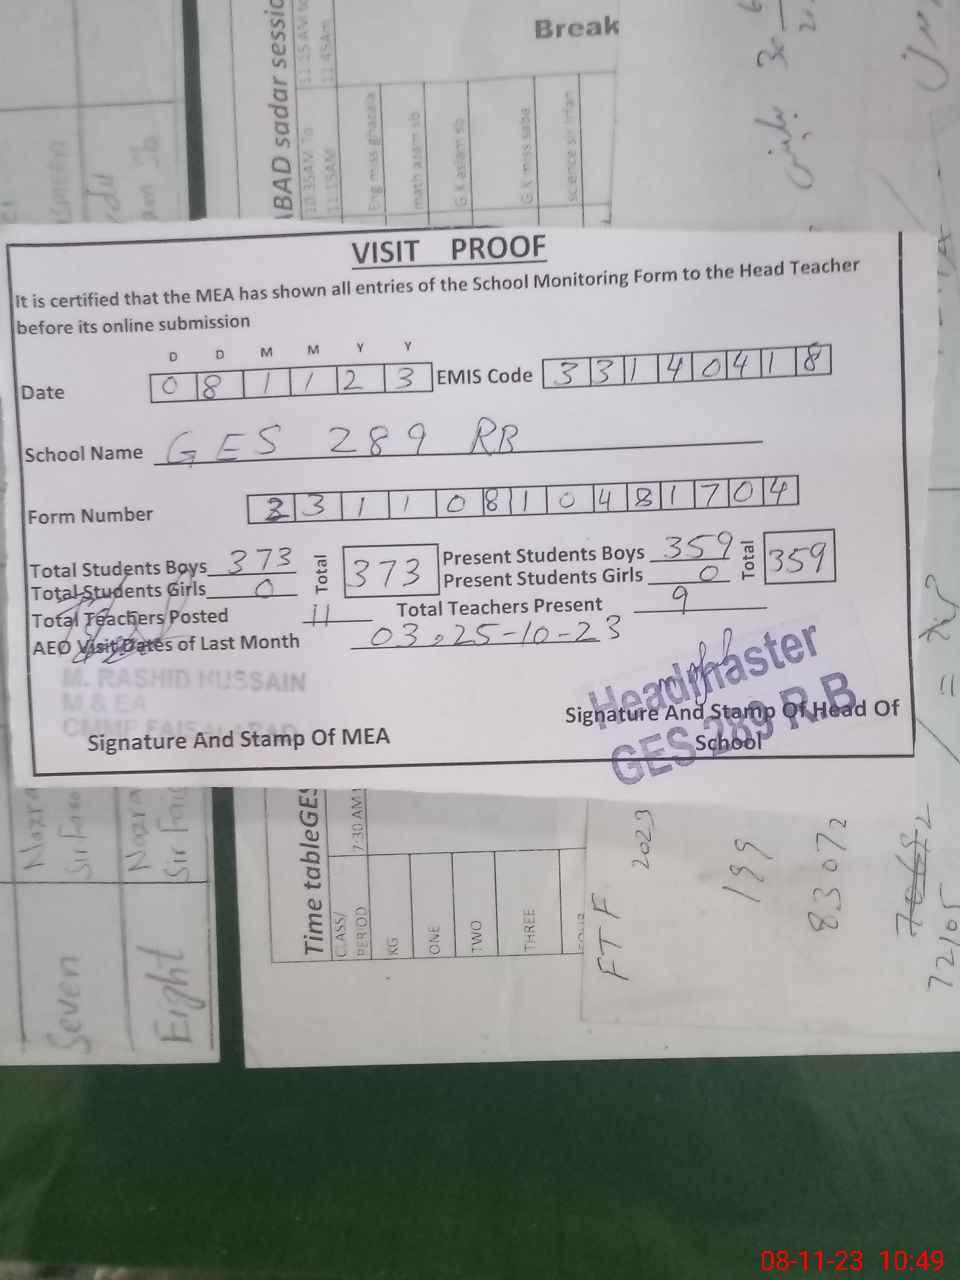 Break
ABAD sadar sessio
10:35AM To
11:15AM
11:15 AM to
11:45Am
Eng miss ghazala
math azam sb
G K aslam sb
G K miss saba
science sir irfan
VISIT PROOF
It is certified that the MEA has shown all entries of the School Monitoring Form to the Head Teacher
before its online submission
D D M M Y Y
Date 0 8 1 1 2 3 EMIS Code 3 3 1 4 0 4 1 8
School Name GES 289 RB
Form Number 3 3 1 1 0 8 1 0 4 8 1 7 0 4
Total Students Boys 373 Total 373 Present Students Boys 359 Total 359
Total Students Girls 0 Present Students Girls 0
Total Teachers Posted 11 Total Teachers Present 9
AEO Visit Dates of Last Month 03, 25-10-23
M. RASHID HUSSAIN
M & EA
CMMF FAISALABAD
Signature And Stamp Of MEA
Headmaster
GES 289 R.B
Signature And Stamp Of Head Of
School
Time tableGES
CLASS/
PERIOD
7:30 AM
KG
ONE
TWO
THREE
FOUR
Nazra
Sir Faso
Nazra
Sir Fai
Seven
Eight
FTF
2023
199
83072
72105
08-11-23 10:49